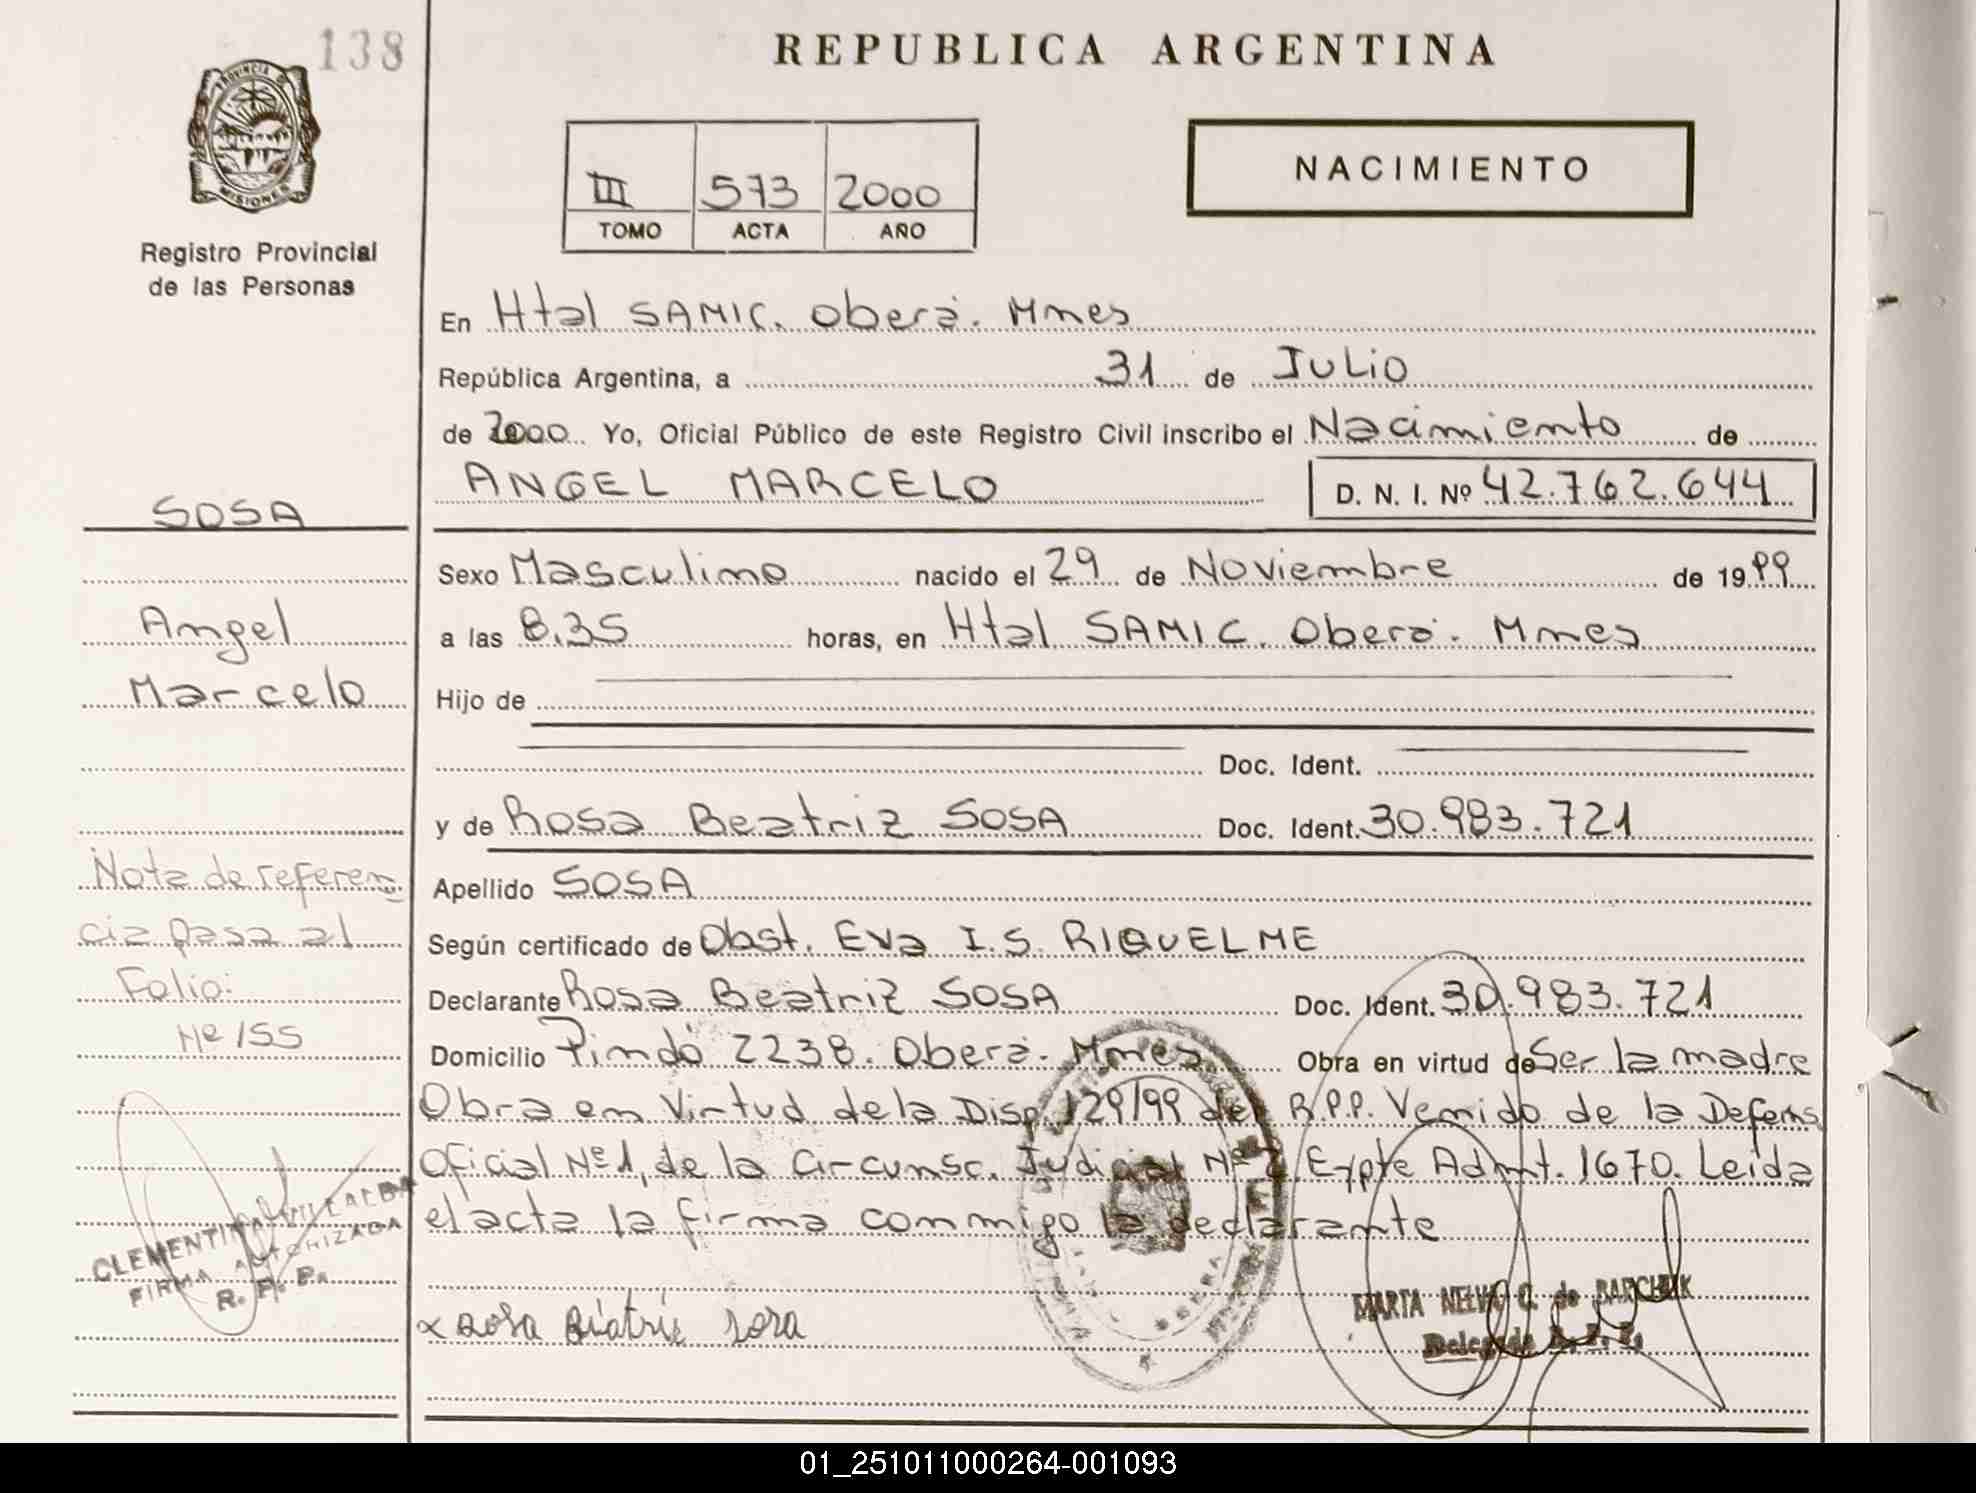 138
REPUBLICA ARGENTINA
PROVINCIA DE
MISIONES
Registro Provincial
de las Personas
III 573 2000
TOMO ACTA AÑO
NACIMIENTO
En Htal SAMIC. Oberá. Mnes
República Argentina, a 31 de Julio
de 2000 Yo, Oficial Público de este Registro Civil inscribo el Nacimiento de
ANGEL MARCELO D. N. I. Nº 42.762.644
SOSA
Angel
Marcelo
Sexo Masculino nacido el 29 de Noviembre de 1999
a las 8.35 horas, en Htal SAMIC. Oberá. Mnes
Hijo de
Doc. Ident.
y de Rosa Beatriz SOSA Doc. Ident. 30.983.721
Apellido SOSA
Según certificado de Obst. Eva I.S. RIQUELME
Declarante Rosa Beatriz SOSA Doc. Ident. 30.983.721
Domicilio Pindó 2238. Oberá. Mnes Obra en virtud de Ser la madre
Obra en Virtud de la Disp. 129/99 del R.P.P. Venido de la Defens
Oficial Nº1, de la Circunsc. Judicial Nº 2 Expte Admt. 1670. Leida
el acta la firma conmigo la declarante
Nota de referen
cia pasa al
Folio:
Nº 155
CLEMENTINA VILLALBA
FIRMA AUTORIZADA
R. P. P.
x Rosa Biatris Sosa
MARTA NELVI C. de BARCHUK
Delegada R. P. P.
01_251011000264-001093